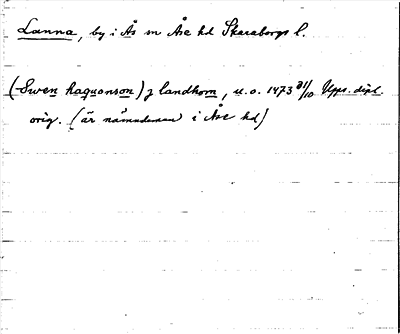 Lanna, by i Ås sn Åse hd Skaraborgs l.
(Swen haquonson) j landhom, u.o. 1473 31/10 Upps. dipl.
orig. (är nämndeman i Åse hd)